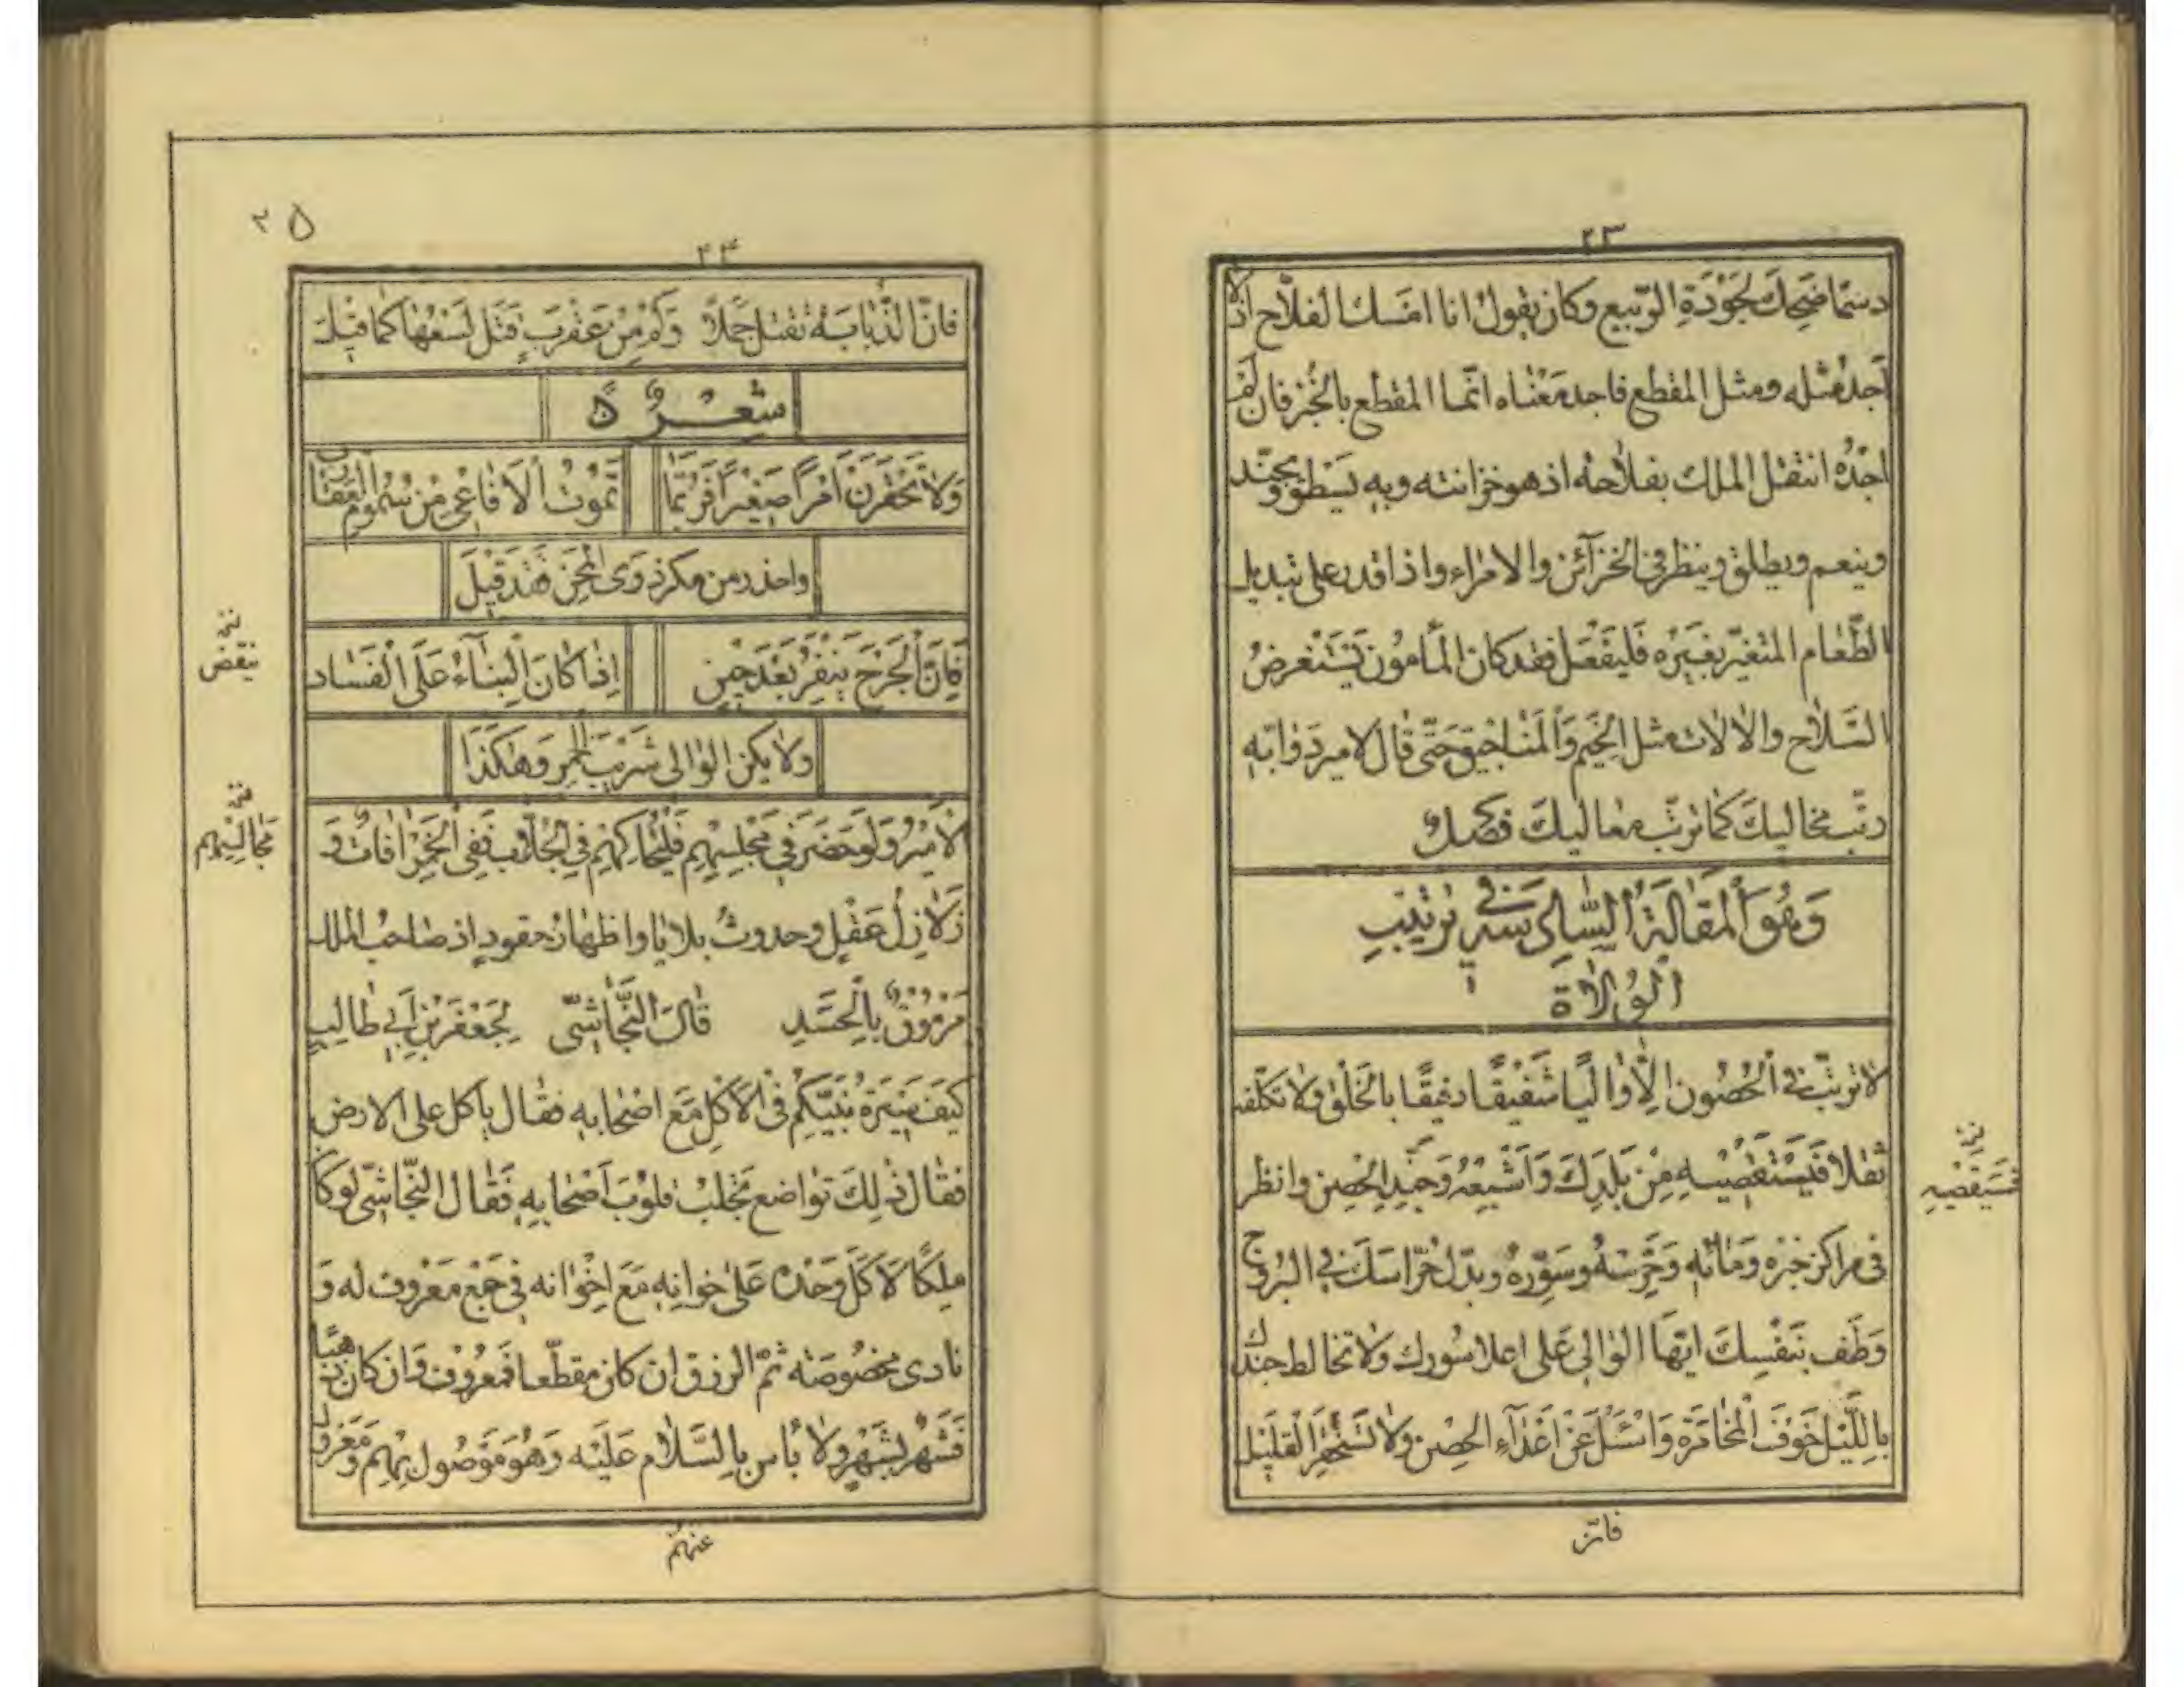 ٢٣
دسمًا ضحك لجودة الربيع وكان يقول انا امسك الفلّاح اذ لا
اجد مثله ومثل المقطع فاجد معناه انّما المقطع بالخبز فان لم
اجده انتقل الملك بفلاحه اذ هو خزانته وبه يسطو ويجنّد
وينعم ويطلق وينظر في الخزآئن والامراء واذا قدر على تبديل
الطّعام المتغيّر بغيره فليفعل فقد كان المأمون يستعرض
السّلاح والالات مثل الخيم وَالمناجيق حَتّى قال لامير دَوابّه
رتّب مخاليك كما ترتّب معاليك فصل
وَهُوَ الْمَقَالَةُ السّادسة في ترتيب
الْوُلاة
لا ترتّب في الْحُصُون اِلّا وَاليًا شَفيقًا رفيقًا بالخَلْق ولا تكلّفه
ثقلا فَيَسْتَقصيهِ مِنْ بَلَدِكَ وَاَشْبِعْهُ وَجَنِّدِ الحِصن وانظر
نخ
فَيَسْتَقْصِيهِ
في مراكز خبزه وَمَائه وَحَرَسَهُ وسَوّرهُ وبدّل حُرّاسَكَ في البروج
وَطُف بنَفْسِكَ ايّهَا الوٰالي عَلى اعلا سُورك ولا تخالط جندك
باللّيْل خَوفَ الْمخامَرة وَاسْئَلْ عَنْ اغذآءِ الحِصن ولا تَسْتَحْقِرِ القليل
فانّ
٢٥
٢٤
فانّ الذّبابَة تقتل جَملاً وَكم مِنْ عَقْرَبٍ قتل لَسْعُهَا كَما قيلَ
شعر
وَلا تَحْقِرَنَّ اَمْرًا صَغِيْرًا فَرُبَّمَا تَموُتُ الْاَفَاعى مِنْ سُمُومِ الْعَقارب
واحذر من مكر ذوى المحن فَقَد قيلَ
فَاِنَّ الْجَرْحَ ينفر بَعْدَ حِيْنٍ اِذا كانَ الْبِنآءُ عَلَى الْفَسَاد
نخ
ينقض
ولا يكن الوالى شَرّيبَ الخمر وَهٰكَذَا
الْاَمير وَلَوحَضَرَ فِي مَجْلِسِهِم فَلْيُحَاكِهِم في الجلّاب فَفِي الْخَمْرِ اٰفاتٌ وَ
نخ
مَجالِسِهِم
زَلازِلُ عَقْلٍ وحدوث بلايا واظهار حقودٍ اذ صَاحبُ الملك
مَرْموُقٌ بِالْحَسَدِ قالَ النَّجَاشىّ لِجَعْفَرَ بْنِ اَبي طالِبٍ
كَيفَ سيرَةُ نَبيّكُم في الاكل مَعَ اصْحابه فقال يأكل على الارض
فقال ذلِكَ تواضع تجلبُ قلوبَ اَصْحابِه فَقال النّجاشىّ لو كان
مَلِكًا لَاَكَلَ وَحْدَهُ عَلى خوانِه مَعَ اِخْوَانه في جَمْع مَعْروف له وَ
نادى مخصُوصَة ثمّ الرزق ان كان مقطّعا فمَعْروف وَان كان ذهبًا
فَشَهْرٌ بِشَهْرٍ ولا بأس بالسَّلام عَلَيْه وَهُوَ مَوْصُول بِهِم وَمَعْرُوف
عنهم